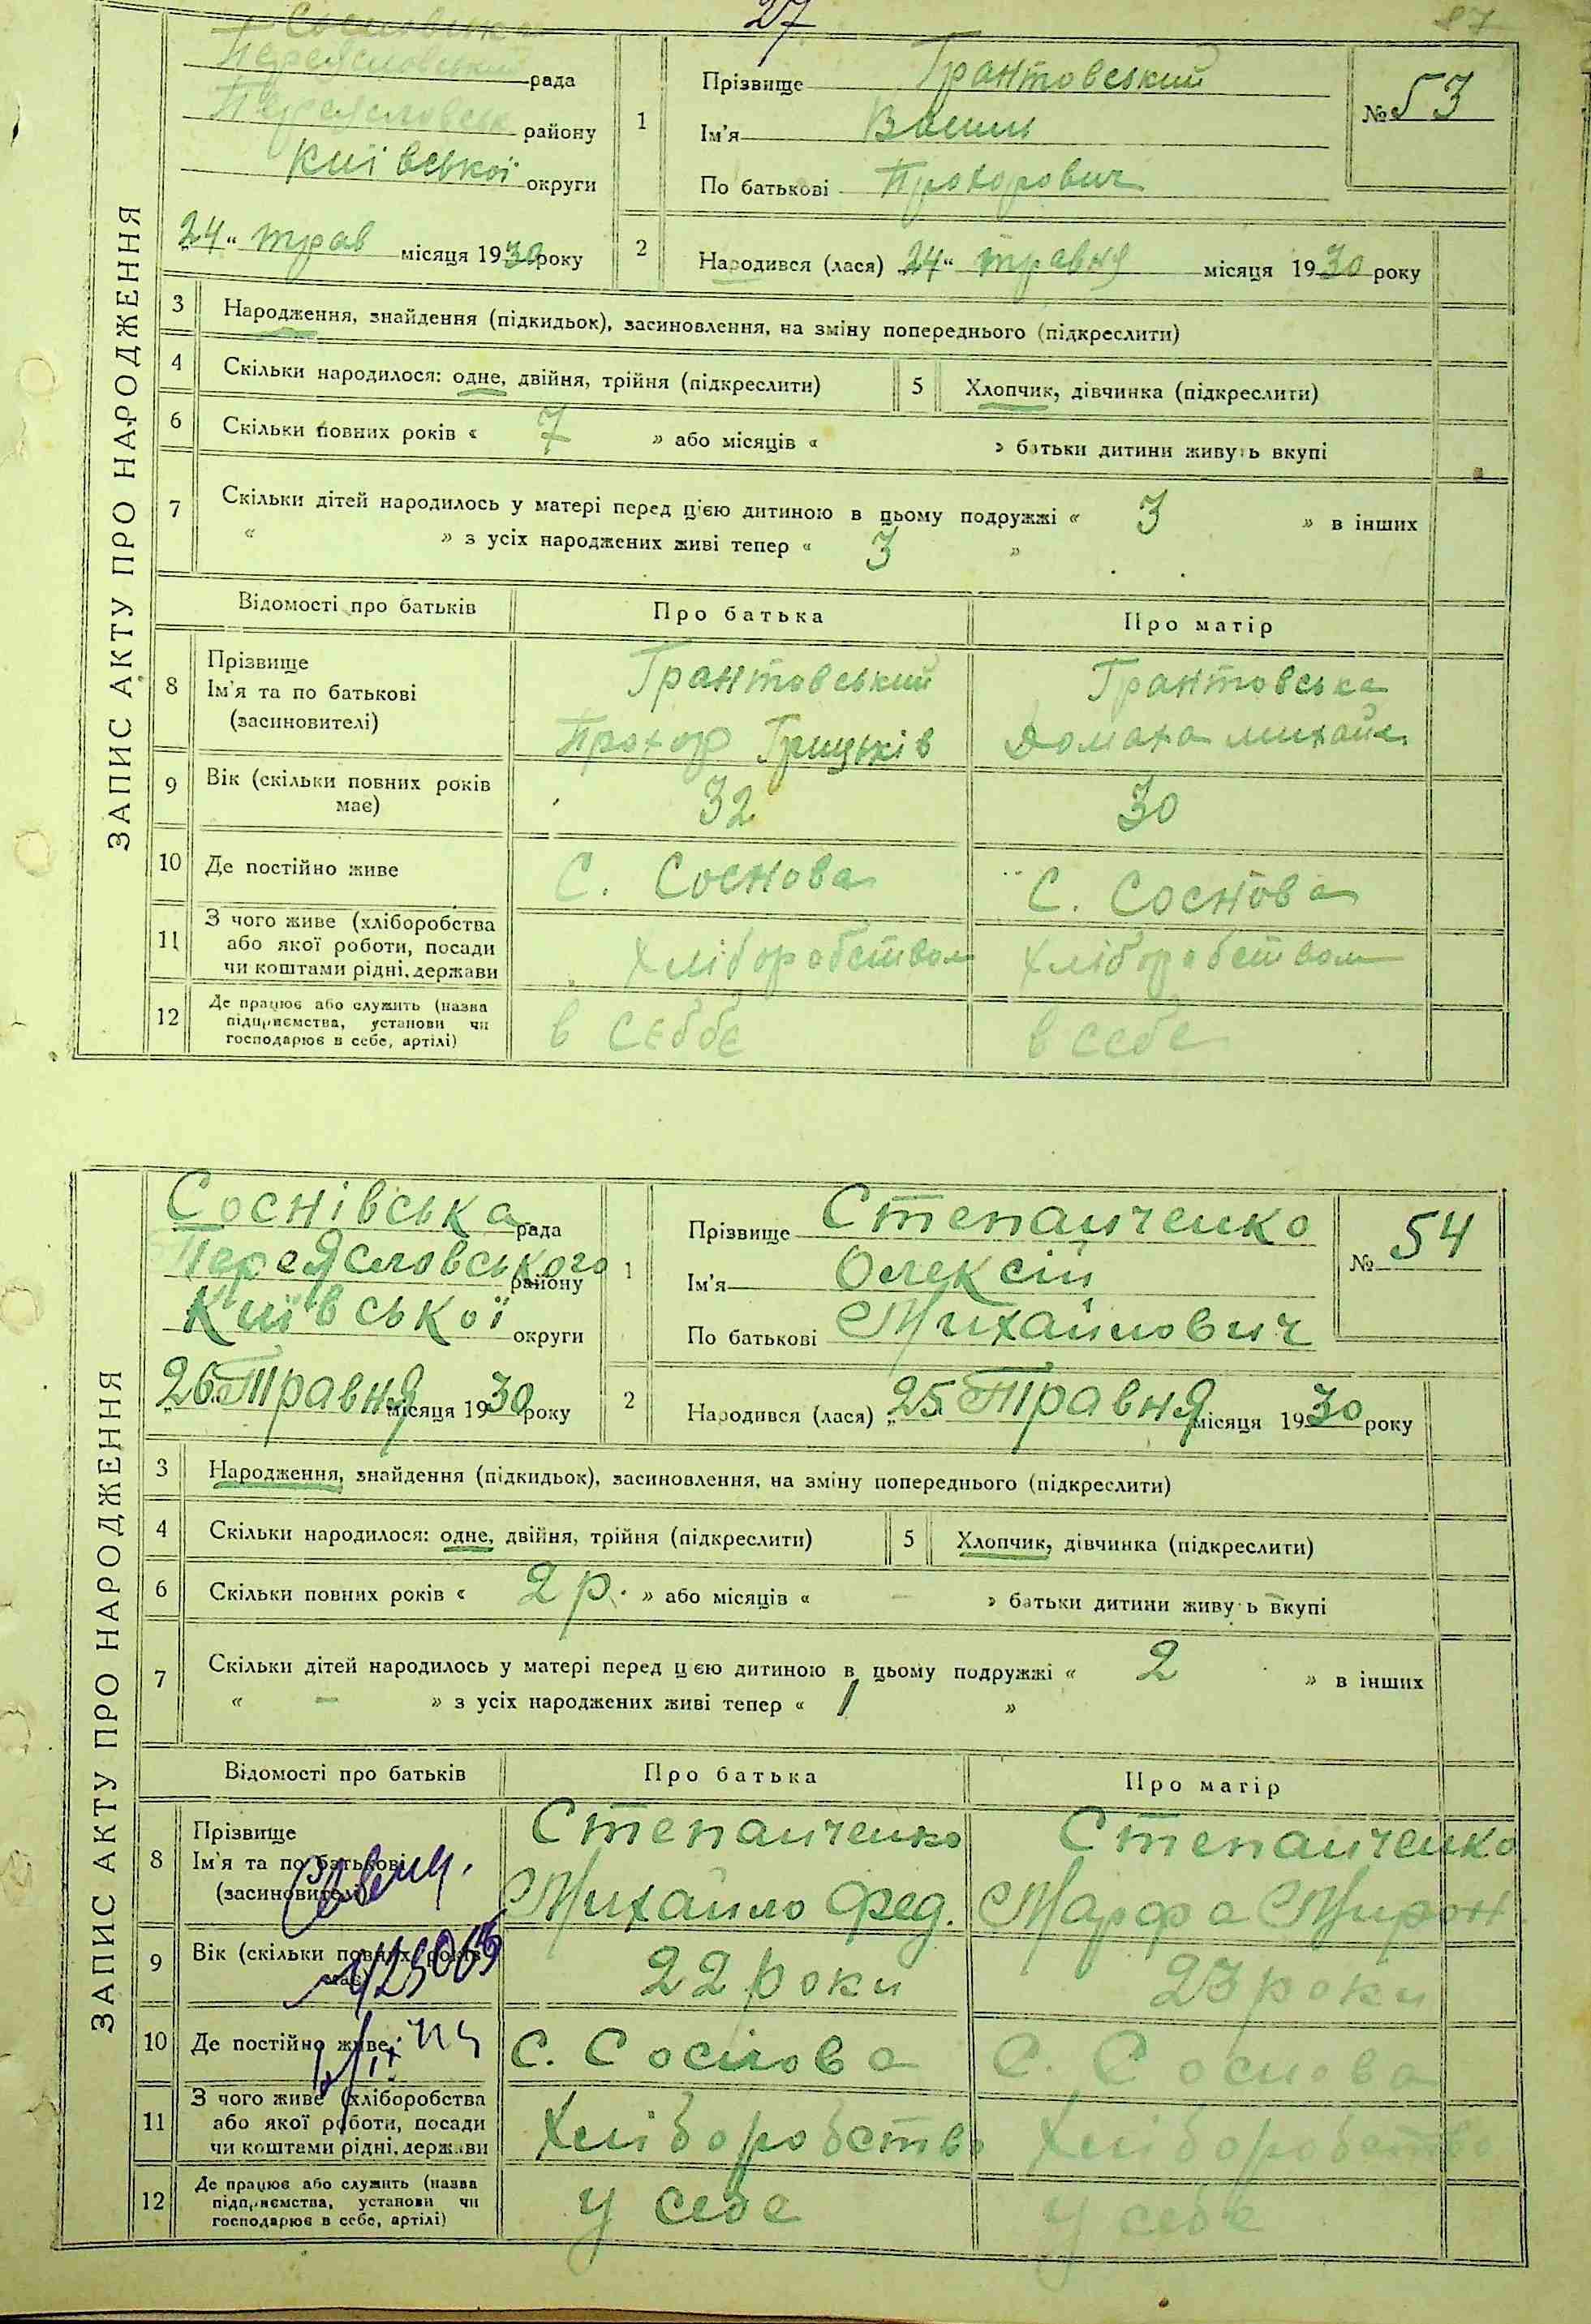 27
ЗАПИС АКТУ ПРО НАРОДЖЕННЯ
рада
району
Київської округи
„24“ трав місяця 1930 року
1
Прізвище Грантовський
Ім'я
По батькові Прохорович
№ 53
2
Народився (лася) „24“ травня місяця 1930 року
3 Народження, знайдення (підкидьок), засиновлення, на зміну попереднього (підкреслити)
4 Скільки народилося: одне, двійня, трійня (підкреслити)
5 Хлопчик, дівчинка (підкреслити)
6 Скільки повних років « 7 » або місяців « » батьки дитини живуть вкупі
7 Скільки дітей народилось у матері перед цією дитиною в цьому подружжі « 3 » в інших
« » з усіх народжених живі тепер « 3 »
Відомості про батьків Про батька Про матір
8 Прізвище
Ім'я та по батькові
(засиновителі)
Грантовський
Прохор Грицьків
Грантовська
Домаха Михайл
9 Вік (скільки повних років
має)
32 30
10 Де постійно живе С. Соснова С. Соснова
11 З чого живе (хліборобства
або якої роботи, посади
чи коштами рідні, держави
Хліборобством Хліборобством
12 Де працює або служить (назва
підприємства, установи чи
господарює в себе, артілі)
в себбе в себе
ЗАПИС АКТУ ПРО НАРОДЖЕННЯ
Соснівська рада
Переясловського району
Київської округи
„26“ Травня місяця 1930 року
1
Прізвище Степанченко
Ім'я Олексій
По батькові Михайлович
№ 54
2
Народився (лася) „25“ Травня місяця 1930 року
3 Народження, знайдення (підкидьок), засиновлення, на зміну попереднього (підкреслити)
4 Скільки народилося: одне, двійня, трійня (підкреслити)
5 Хлопчик, дівчинка (підкреслити)
6 Скільки повних років « 2 р. » або місяців « – » батьки дитини живуть вкупі
7 Скільки дітей народилось у матері перед цією дитиною в цьому подружжі « 2 » в інших
« – » з усіх народжених живі тепер « 1 »
Відомості про батьків Про батька Про матір
8 Прізвище
Ім'я та по батькові
(засиновителі)
Степанченко
Михайло Фед.
Степанченко
Марфа Мирон
9 Вік (скільки повних років
має)
22 роки 23 роки
10 Де постійно живе С. Соснова С. Соснова
11 З чого живе (хліборобства
або якої роботи, посади
чи коштами рідні, держави
Хліборобство Хліборобство
12 Де працює або служить (назва
підприємства, установи чи
господарює в себе, артілі)
у себе у себе